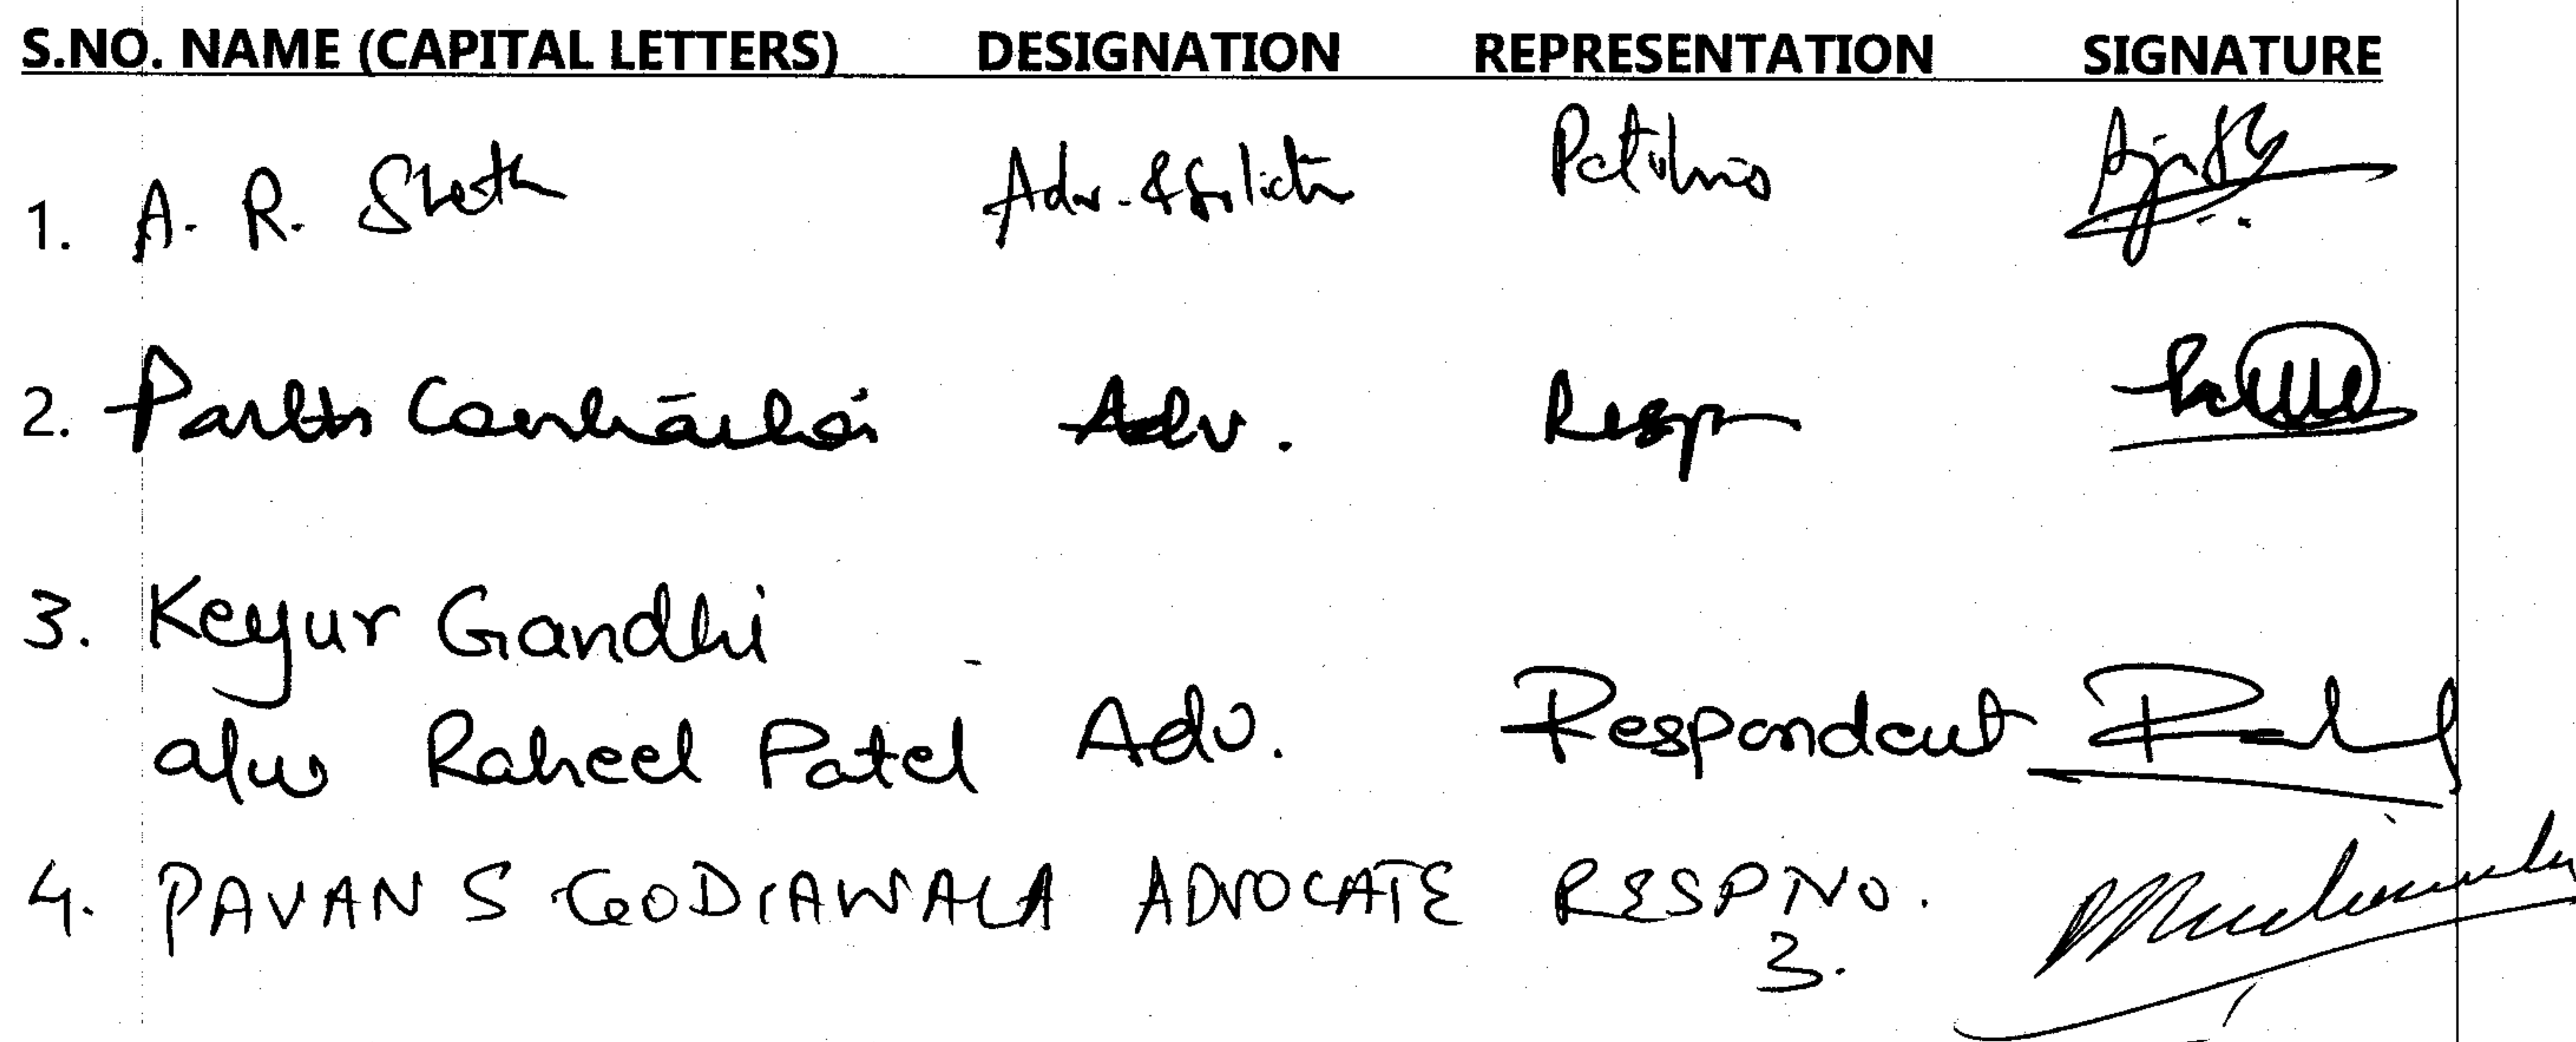 S.NO. NAME (CAPITAL LETTERS) DESIGNATION REPRESENTATION SIGNATURE
1. A. R. Sheth Adv. &
2. Parth Adv. Resp
3. Keyur Gandhi
a/w Raheel Patel Adv. Respondent
4. PAVAN S GODIAWALA ADVOCATE RESP NO.
3.